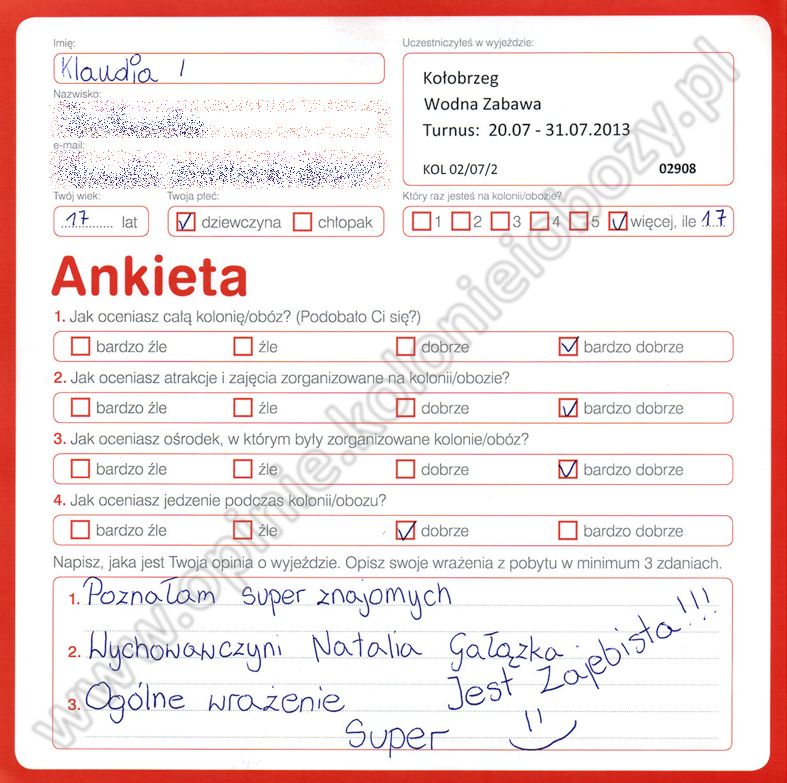 Imię:
Klaudia
Uczestniczyłeś w wyjeździe:
Kołobrzeg
Wodna Zabawa
Turnus: 20.07 - 31.07.2013
KOL 02/07/2 02908
Nazwisko:
e-mail:
Twój wiek:
17 lat
Twoja płeć:
dziewczyna chłopak
Który raz jesteś na kolonii/obozie?
1 2 3 4 5 więcej, ile 17
Ankieta
1. Jak oceniasz całą kolonię/obóz? (Podobało Ci się?)
bardzo źle źle dobrze bardzo dobrze
2. Jak oceniasz atrakcje i zajęcia zorganizowane na kolonii/obozie?
bardzo źle źle dobrze bardzo dobrze
3. Jak oceniasz ośrodek, w którym były zorganizowane kolonie/obóz?
bardzo źle źle dobrze bardzo dobrze
4. Jak oceniasz jedzenie podczas kolonii/obozu?
bardzo źle źle dobrze bardzo dobrze
Napisz, jaka jest Twoja opinia o wyjeździe. Opisz swoje wrażenia z pobytu w minimum 3 zdaniach.
1. Poznałam super znajomych
2. Wychowawczyni Natalia Gałązka
Jest Zajebista!!!
3. Ogólne wrażenie
Super
www.opinie.kolonieiobozy.pl